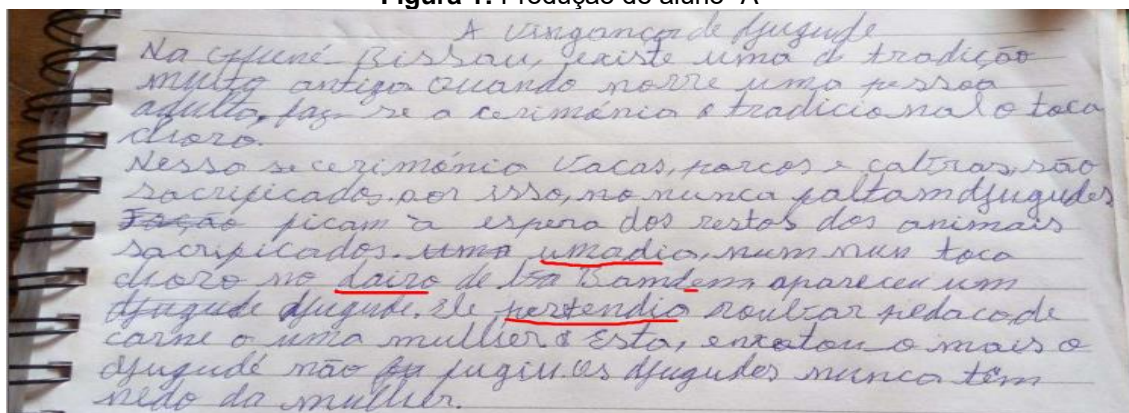 Figura 1: Produção do aluno "A"
A vingança de djugude
Na Guiné Bissau, existe uma d tradição
muito antiga quando morre uma pessoa
adulta, faz-se a cerimónia o tradicional o toca
choro.
Nesso se cerimónia vacas, porcos e cabras, são
sacrificados. por isso, no nunca faltam djugudes
ficam à espera dos restos dos animais
sacrificados. uma umadia, num nun toca
choro no bairo de Bandem apareceu um
djugude djugude. ele pertendia roubar pedaco de
carne a uma mulher Esta, enxotou o mais o
djugudé não fugiu. os djugudes nunca têm
medo da mulher.